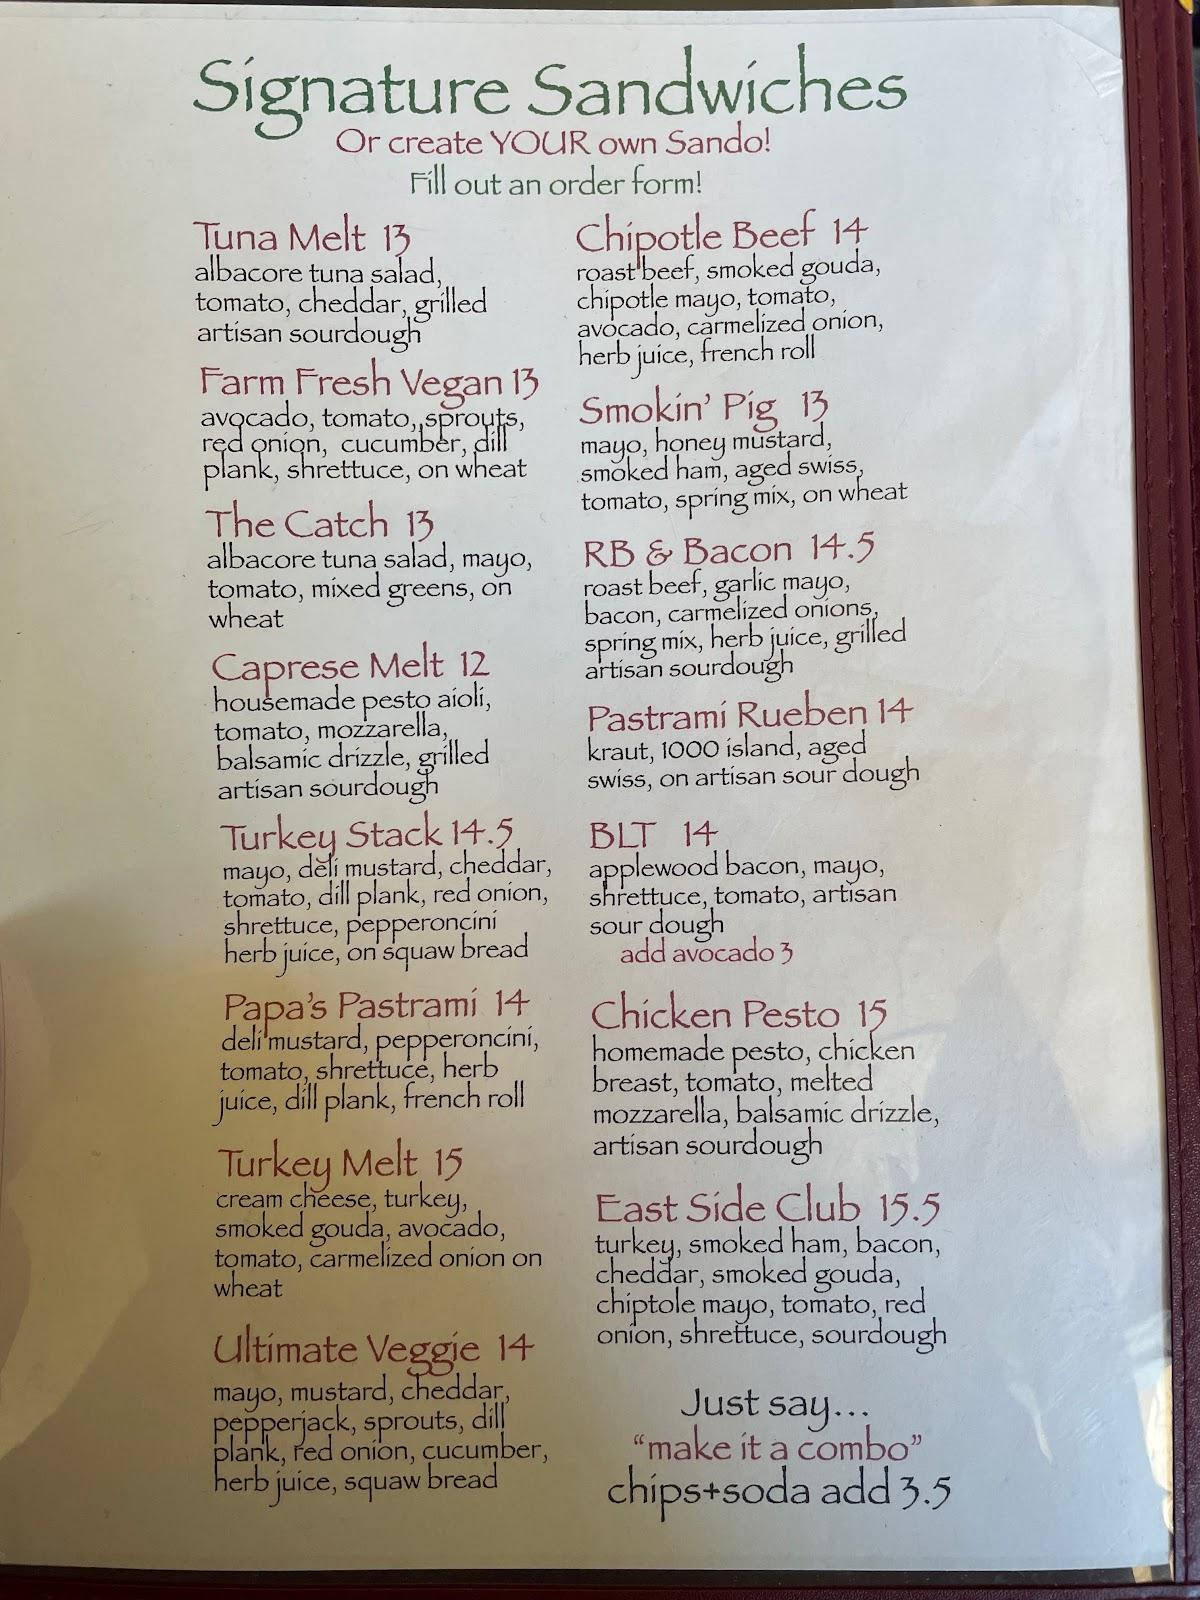 Signature Sandwiches
Or create YOUR own Sando!
Fill out an order form!
Tuna Melt 13
albacore tuna salad,
tomato, cheddar, grilled
artisan sourdough
Farm Fresh Vegan 13
avocado, tomato, sprouts,
red onion, cucumber, dill
plank, shrettuce, on wheat
The Catch 13
albacore tuna salad, mayo,
tomato, mixed greens, on
wheat
Caprese Melt 12
housemade pesto aioli,
tomato, mozzarella,
balsamic drizzle, grilled
artisan sourdough
Turkey Stack 14.5
mayo, deli mustard, cheddar,
tomato, dill plank, red onion,
shrettuce, pepperoncini
herb juice, on squaw bread
Papa's Pastrami 14
deli mustard, pepperoncini,
tomato, shrettuce, herb
juice, dill plank, french roll
Turkey Melt 15
cream cheese, turkey,
smoked gouda, avocado,
tomato, carmelized onion on
wheat
Ultimate Veggie 14
mayo, mustard, cheddar,
pepperjack, sprouts, dill
plank, red onion, cucumber,
herb juice, squaw bread
Chipotle Beef 14
roast beef, smoked gouda,
chipotle mayo, tomato,
avocado, carmelized onion,
herb juice, french roll
Smokin' Pig 13
mayo, honey mustard,
smoked ham, aged swiss,
tomato, spring mix, on wheat
RB & Bacon 14.5
roast beef, garlic mayo,
bacon, carmelized onions,
spring mix, herb juice, grilled
artisan sourdough
Pastrami Rueben 14
kraut, 1000 island, aged
swiss, on artisan sour dough
BLT 14
applewood bacon, mayo,
shrettuce, tomato, artisan
sour dough
add avocado 3
Chicken Pesto 15
homemade pesto, chicken
breast, tomato, melted
mozzarella, balsamic drizzle,
artisan sourdough
East Side Club 15.5
turkey, smoked ham, bacon,
cheddar, smoked gouda,
chiptole mayo, tomato, red
onion, shrettuce, sourdough
Just say...
"make it a combo"
chips+soda add 3.5